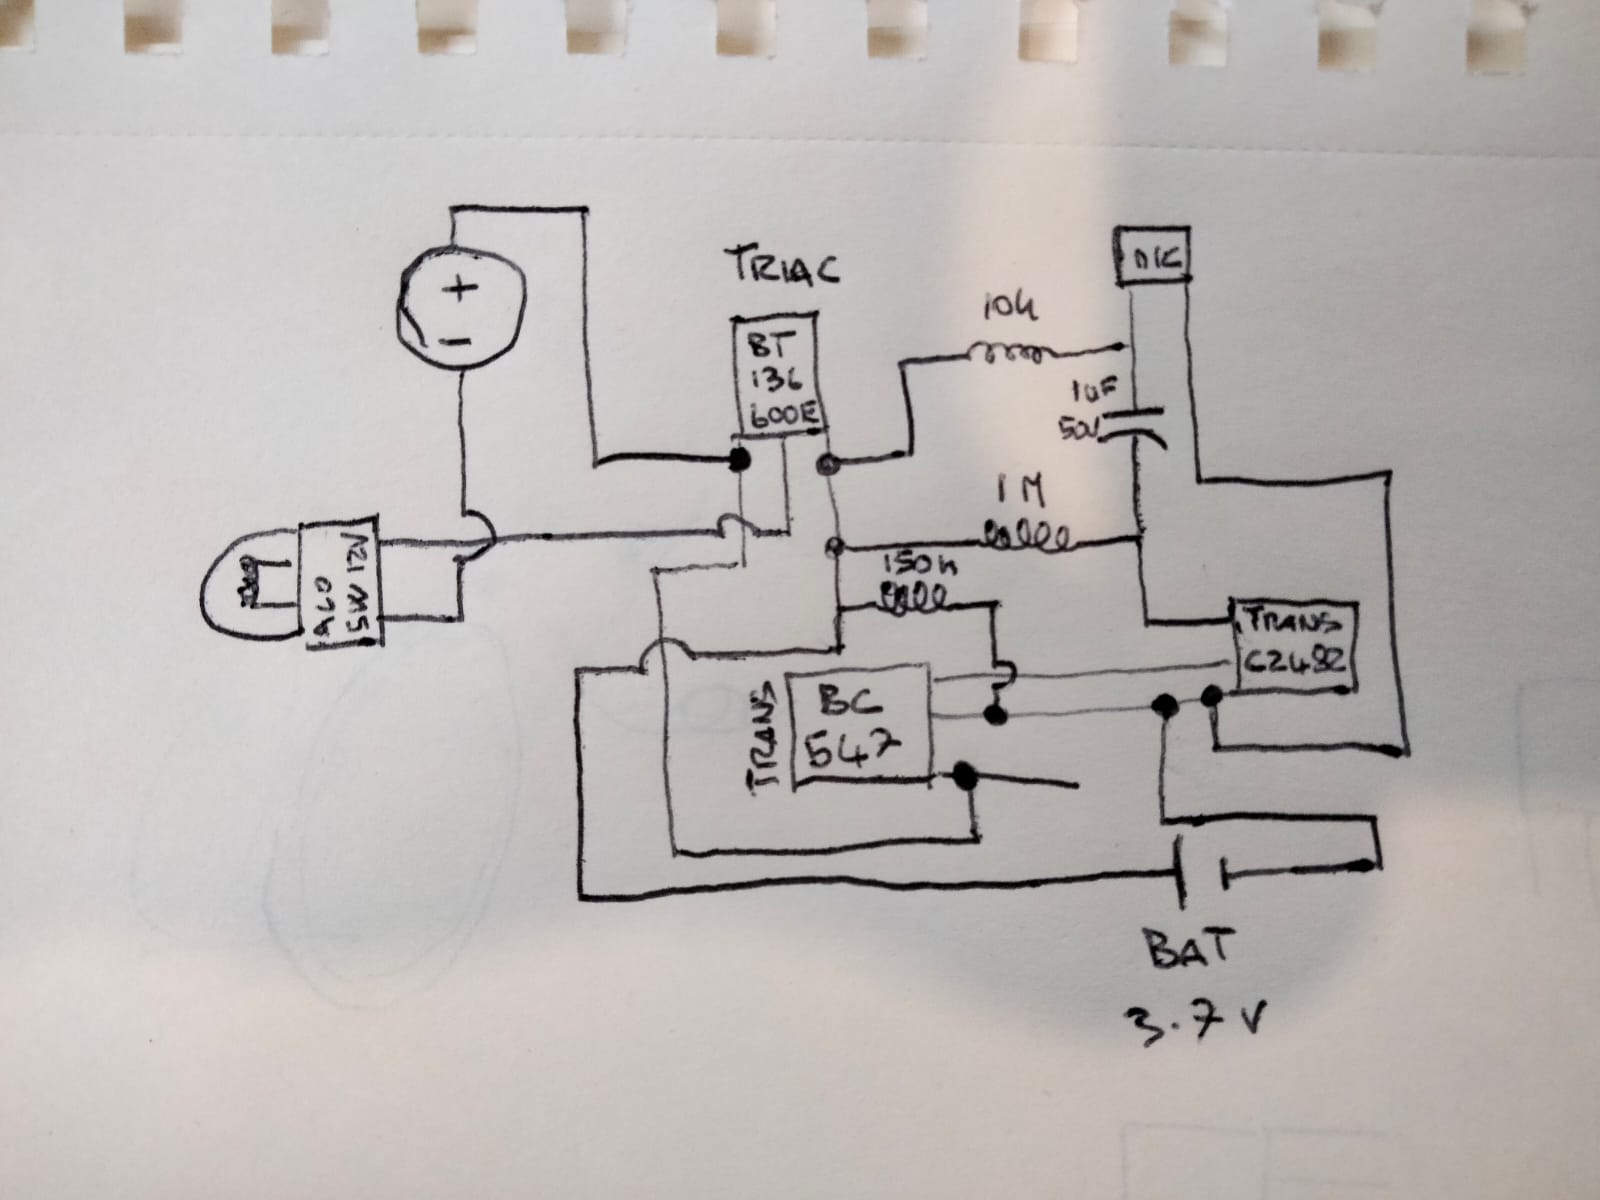 +
−
TRIAC
BT
136
600E
10k
1uF
50V
1M
150k
A60
5W 12V
TRANS
C2482
TRANS
BC
547
BAT
3.7 V